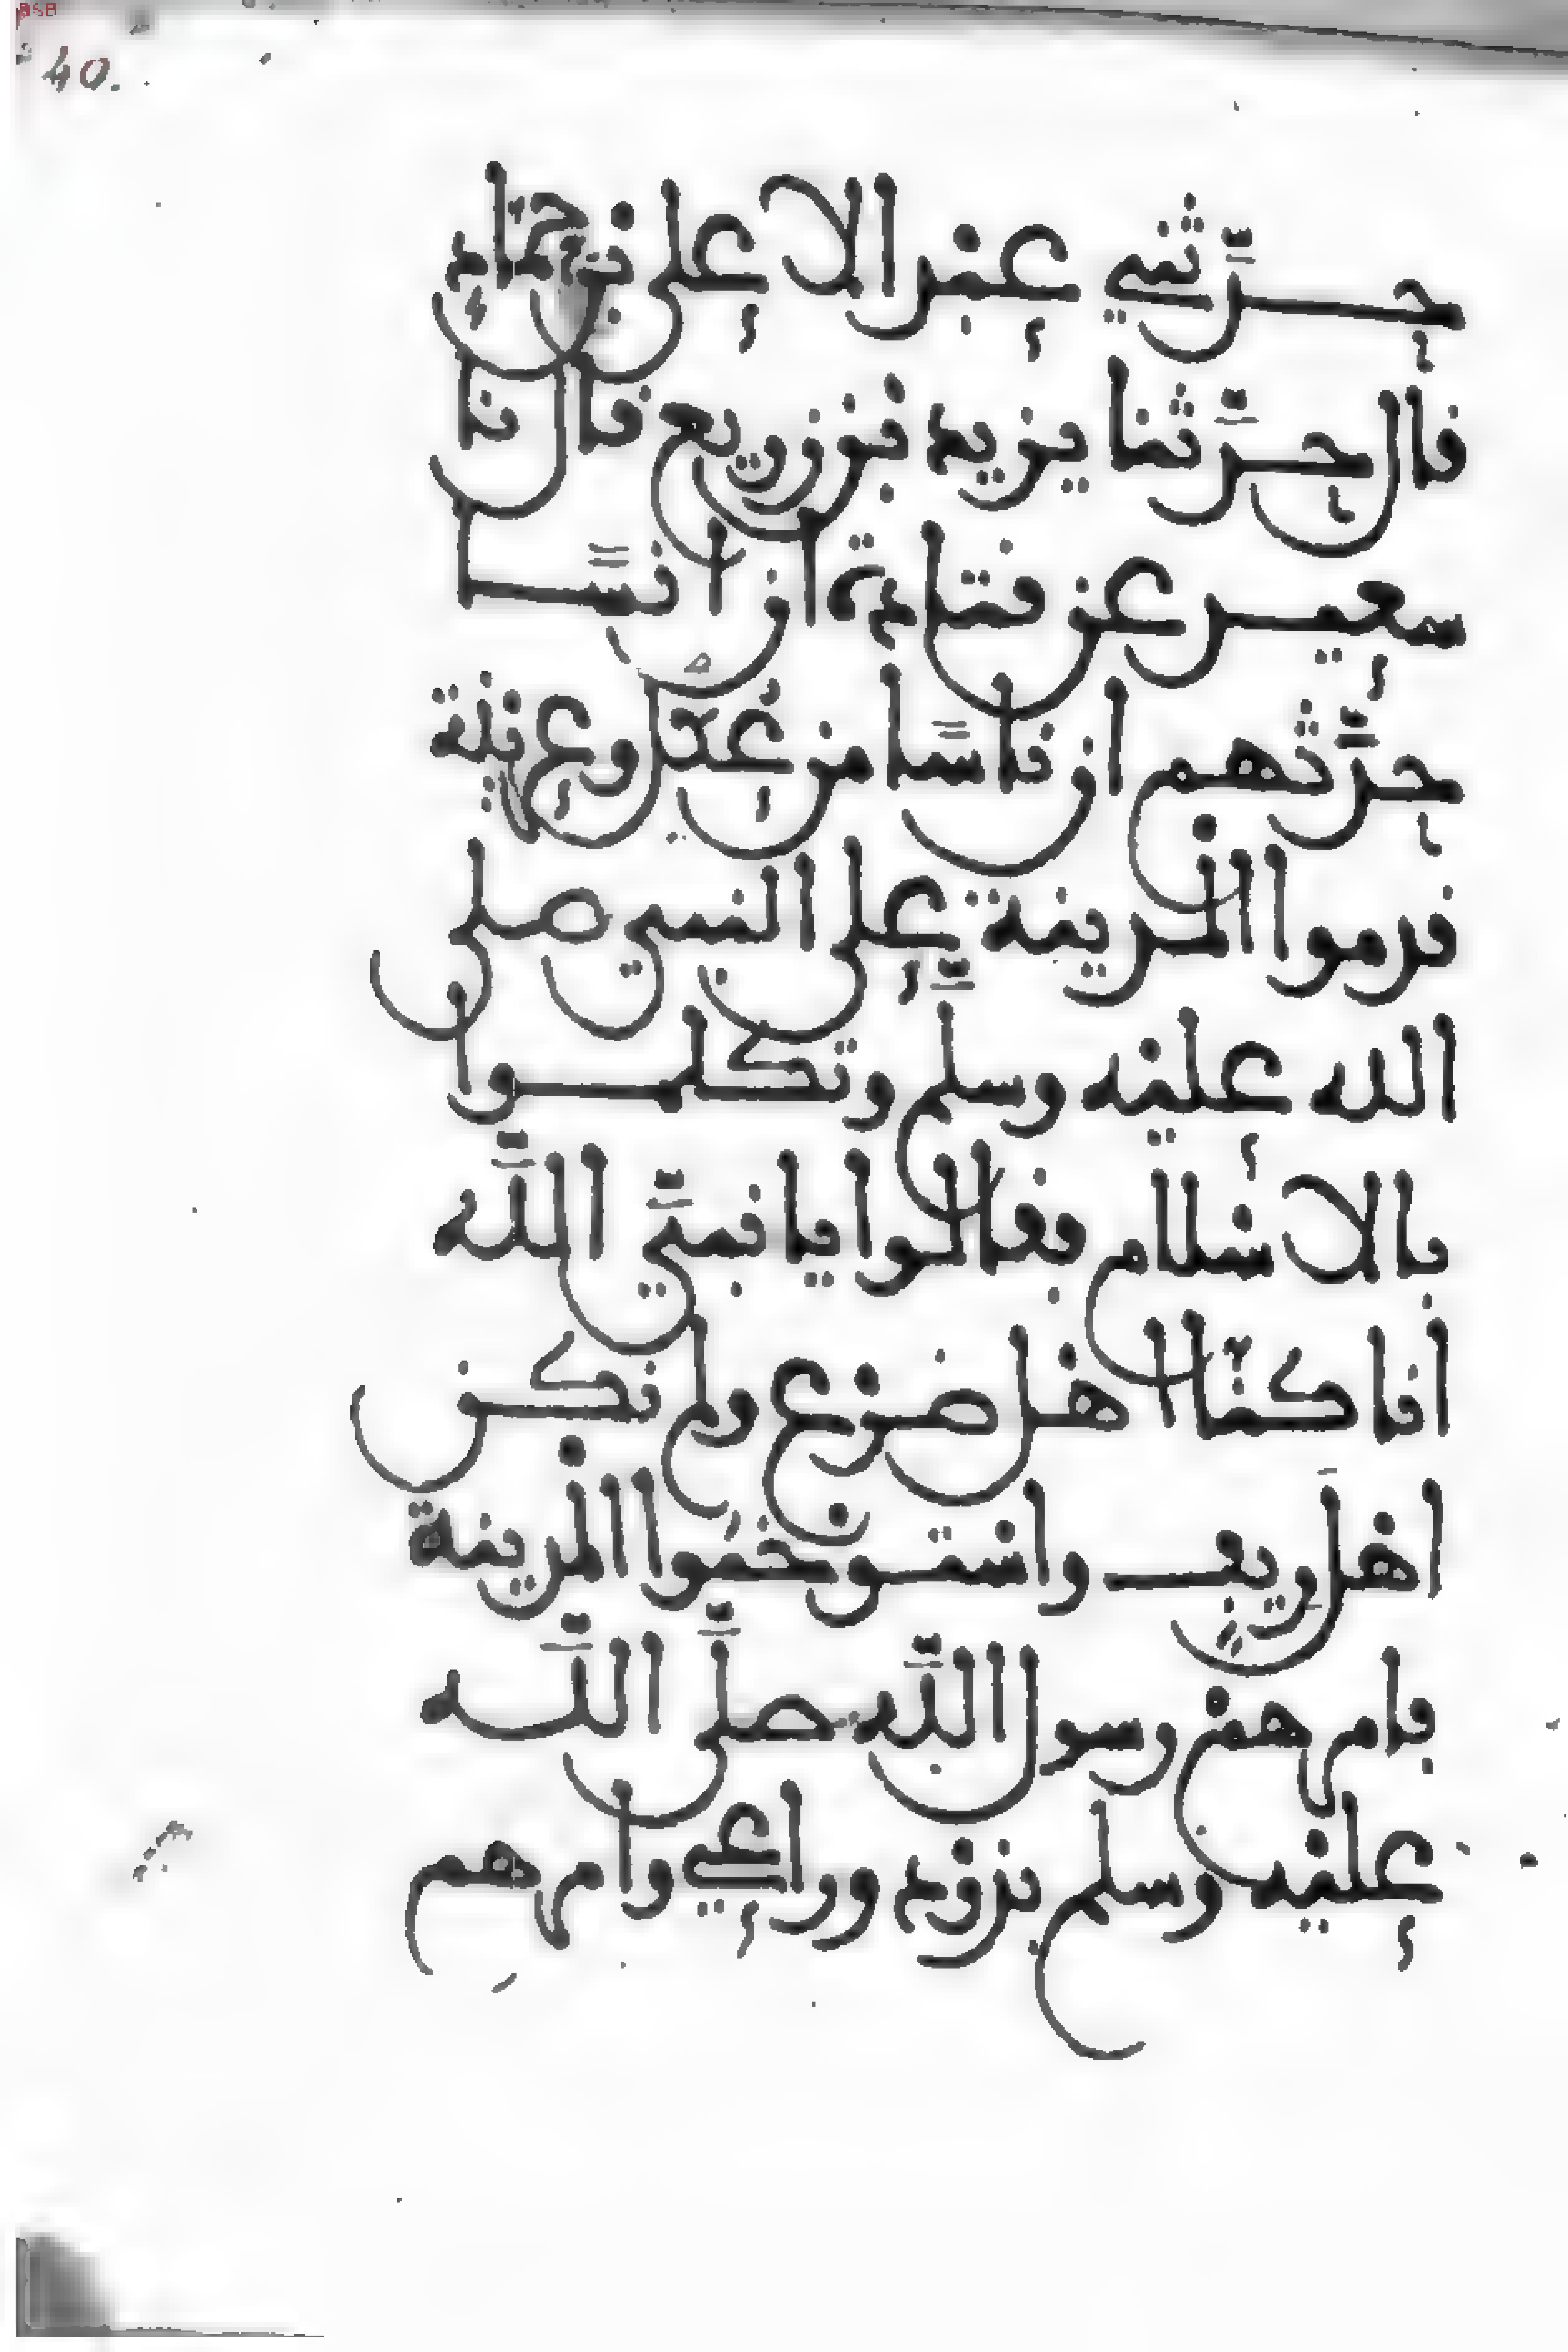 40.
حدثني عبد الاعلى بن حماد
قال حدثنا يزيد بن زريع قال نا
سعيد عن قتادة ان انسا
حدثهم ان ناسا من عكل وعرينة
قدموا المدينة على النبي صلى
الله عليه وسلم وتكلموا
بالاسلام فقالوا يا نبي الله
انا كنا اهل ضرع ولم نكن
اهل ريف واستوخموا المدينة
فامرهم رسول الله صلى الله
عليه وسلم بذود وراعي وامرهم